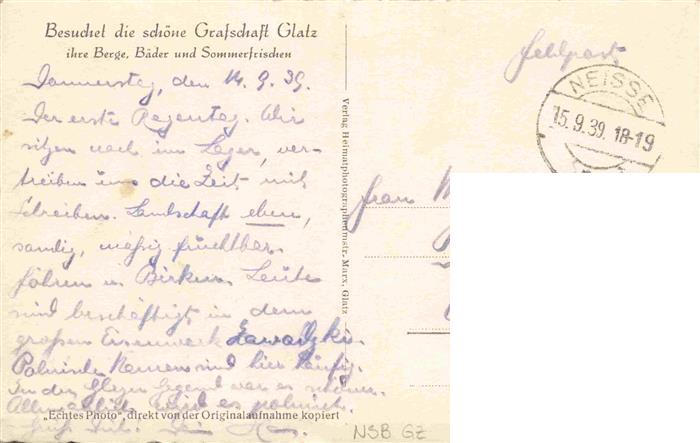 Besuchet die schöne Grafschaft Glatz
ihre Berge, Bäder und Sommerfrischen
Donnerstag, den 14. 9. 39.
Der erste Regentag. Wir
sitzen noch im Lager, ver-
treiben uns die Zeit mit
Schreiben. Landschaft eben,
sandig, mäßig fruchtbar.
Föhren u. Birken. Leute
sind beschäftigt in dem
großen Eisenwerk Zawadzki.
Polnische Namen sind hier häufig.
In der Glazer Gegend war es schöner.
Allmählich wird es polnisch.
„Echtes Photo“, direkt von der Originalaufnahme kopiert
Dein
Verlag Heimatphotographenmstr. Marx, Glatz
Feldpost
NEISSE
15.9.39. 18-19
Frau
NSB GZ